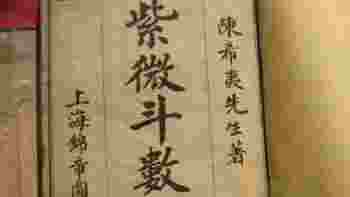 陳希夷先生著
紫微斗數
上海錦章圖